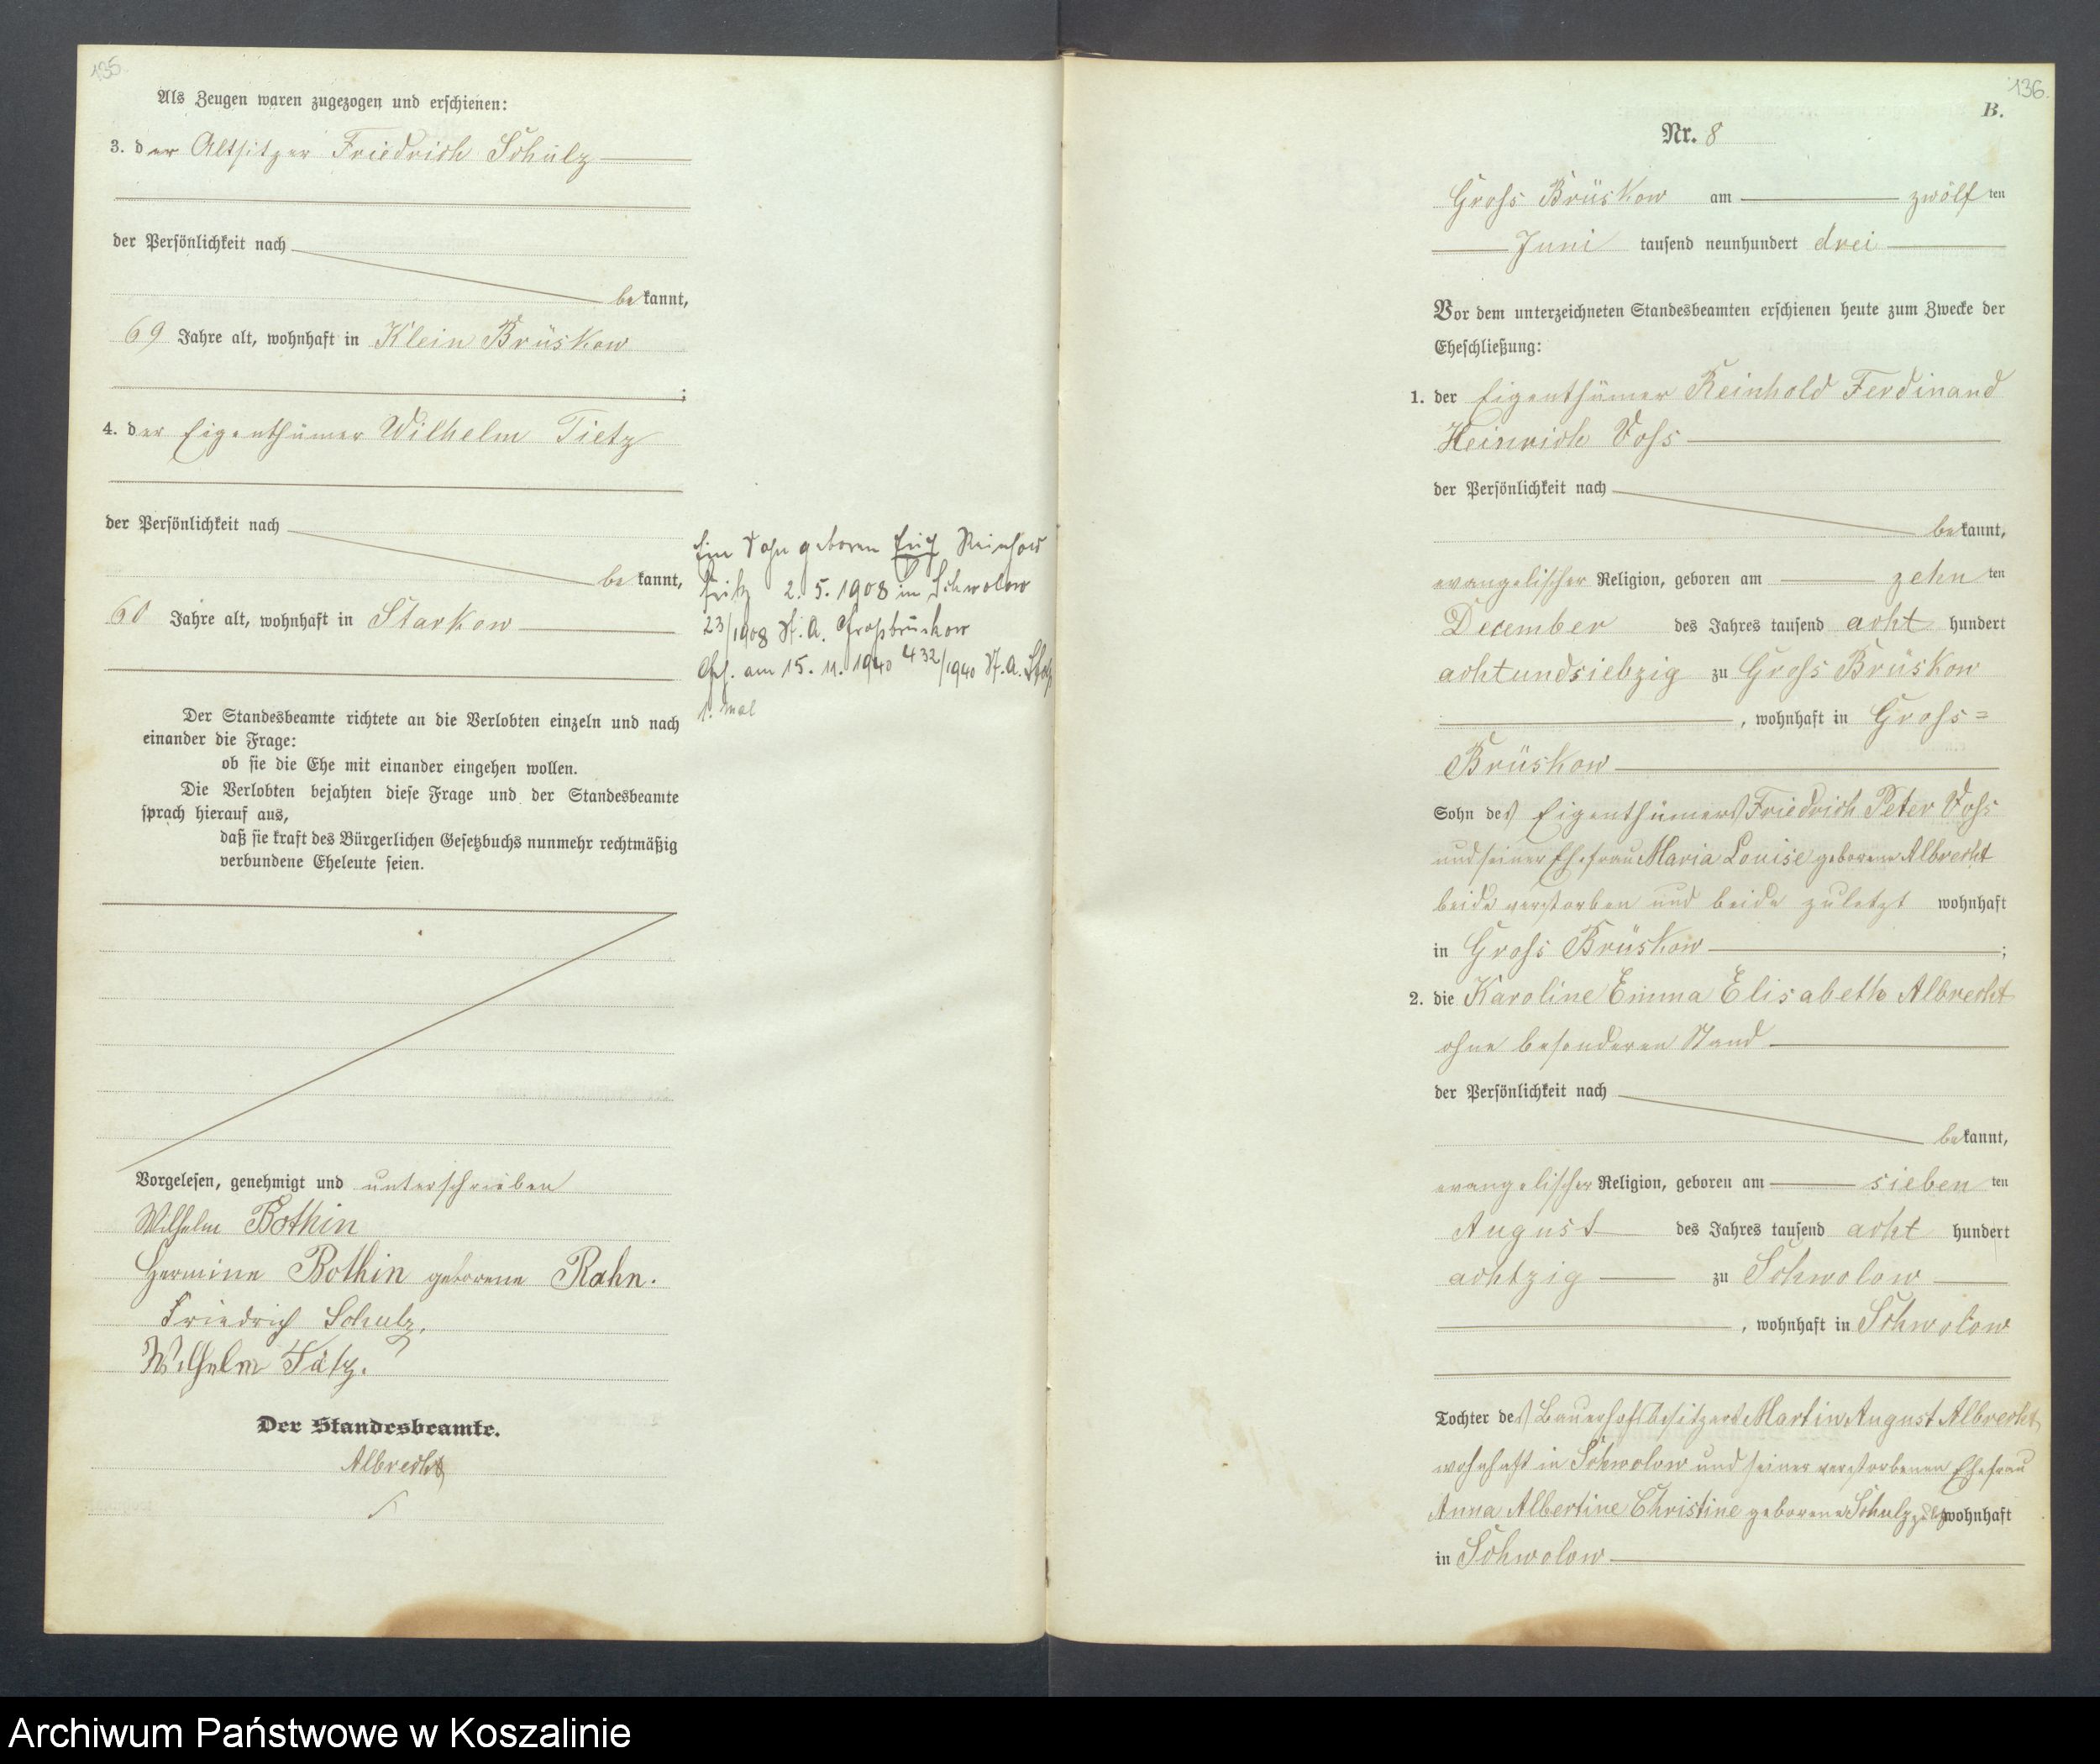 135.
Als Zeugen waren zugezogen und erschienen:
3. der Altsitzer Friedrich Schulz
der Persönlichkeit nach
be kannt,
69 Jahre alt, wohnhaft in Klein Brüskow
;
4. der Eigenthümer Wilhelm Tietz
der Persönlichkeit nach
be kannt,
60 Jahre alt, wohnhaft in Starkow
Der Standesbeamte richtete an die Verlobten einzeln und nach
einander die Frage:
ob sie die Ehe mit einander eingehen wollen.
Die Verlobten bejahten diese Frage und der Standesbeamte
sprach hierauf aus,
daß sie kraft des Bürgerlichen Gesetzbuchs nunmehr rechtmäßig
verbundene Eheleute seien.
Vorgelesen, genehmigt und unterschrieben
Wilhelm Bothin
Hermine Bothin geborene Rahn.
Friedrich Schulz.
Wilhelm
Der Standesbeamte.
Albrecht
Ein Sohn geboren Erich Reinhold
Fritz 2.5.1908 in Schwolow
23/1908 St.A. Großbrüskow
Geh. am 15. 11. 1940 432/1940 St.A. Stolp
1. mal
136.
B.
Nr. 8
Gross Brüskow am zwölf ten
Juni tausend neunhundert drei
Vor dem unterzeichneten Standesbeamten erschienen heute zum Zwecke der
Eheschließung:
1. der Eigenthümer Reinhold Ferdinand
Heinrich Voss
der Persönlichkeit nach
be kannt,
evangelischer Religion, geboren am zehn ten
December des Jahres tausend acht hundert
achtundsiebzig zu Gross Brüskow
, wohnhaft in Gross=
Brüskow
Sohn des Eigenthümers Friedrich Peter Voss
und seiner Ehefrau Maria Louise geborene Albrecht
beide verstorben und beide zuletzt wohnhaft
in Gross Brüskow ;
2. die Karoline Emma Elisabeth Albrecht
ohne besonderen Stand
der Persönlichkeit nach
be kannt,
evangelischer Religion, geboren am sieben ten
August des Jahres tausend acht hundert
achtzig zu Schwolow
, wohnhaft in Schwolow
Tochter des Bauerhofsbesitzers Martin August Albrecht,
wohnhaft in Schwolow und seiner verstorbenen Ehefrau
Anna Albertine Christine geborene Schulz wohnhaft
in Schwolow
Archiwum Państwowe w Koszalinie